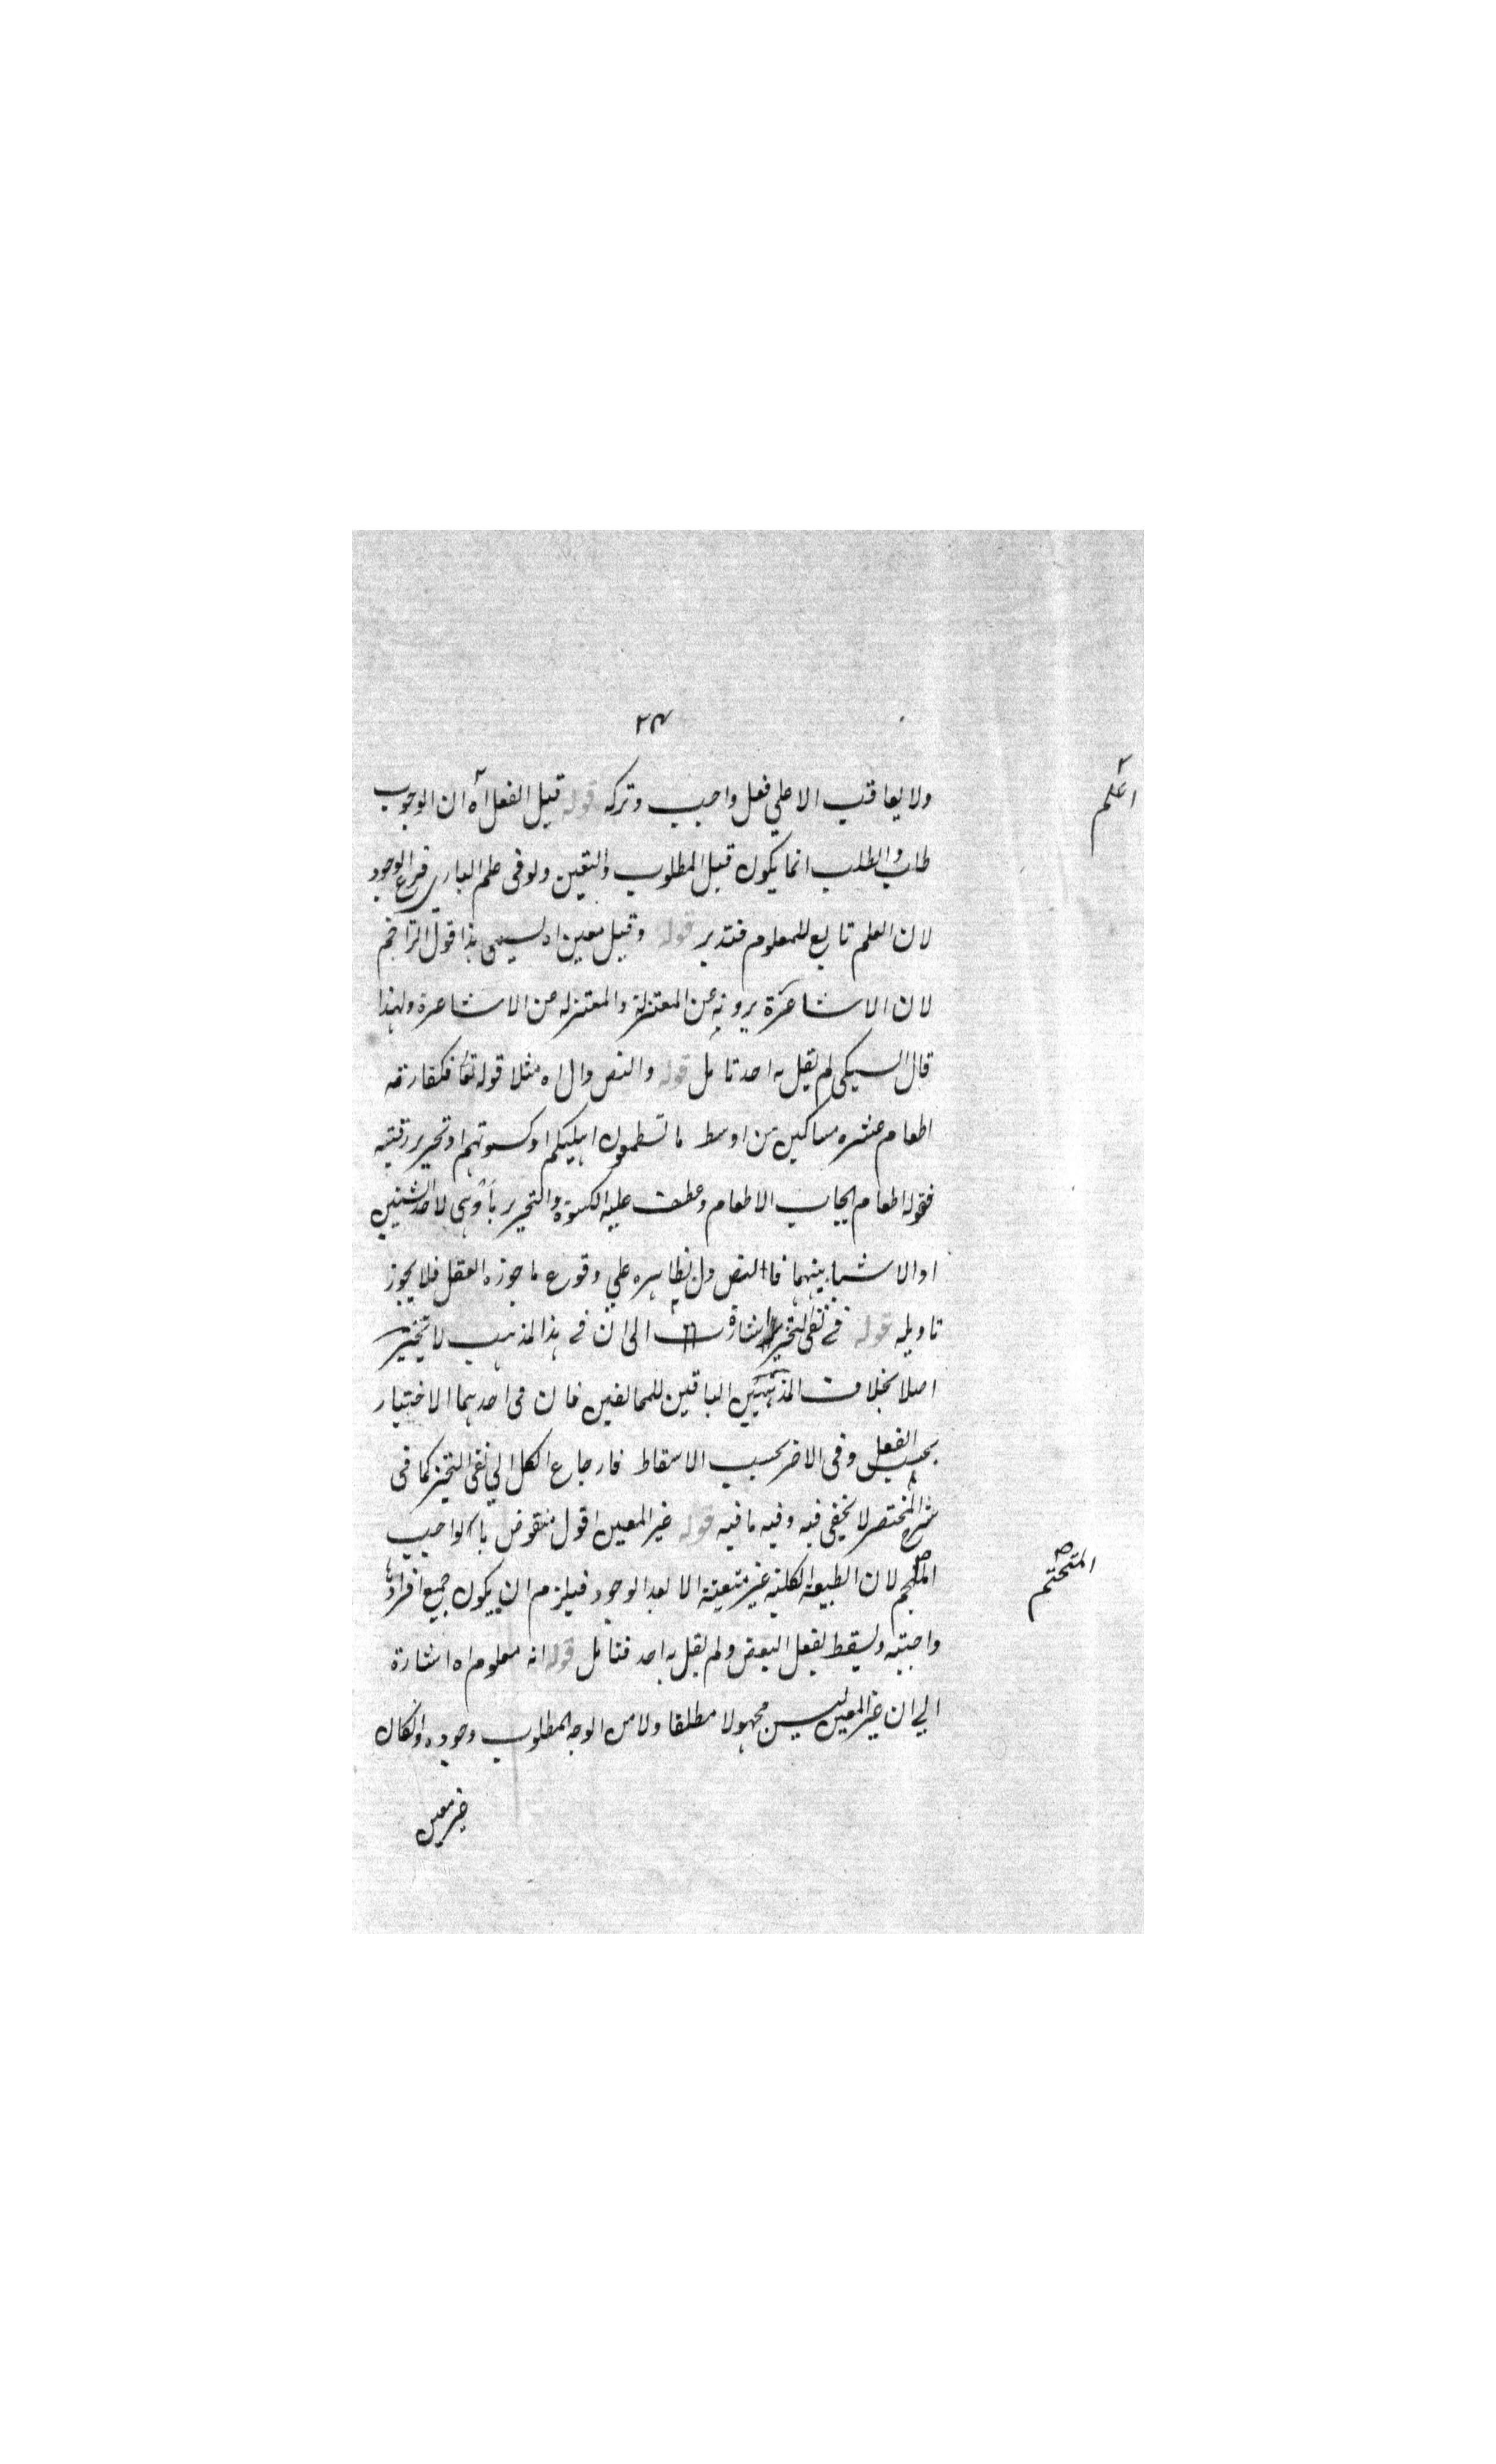 ٢٣
ولا يعاقب الا على فعل واجب وتركه قوله قبل الفعل اه ان الوجوب
اعلم
طلب والطلب انما يكون قبل المطلوب والتعين ولو فى علم البارى فرع الوجود
لان العلم تابع للمعلوم فتدبر قوله وقيل معين اه ليسمى هذا قول التراجم
لان الاشاعرة يرونه عن المعتزلة والمعتزله عن الاشاعرة ولهذا
قال السبكى لم يقل به احد تامل قوله والنص دال اه مثلا قوله تعا فكفارته
اطعام عشره مساكين من اوسط ما تطعمون اهليكم او كسوتهم او تحرير رقبته
فقوله اطعام ايجاب الاطعام وعطف عليه الكسوة والتحرير باو وهى لاحد الشيئين
او الاشيا بينهما فالنص دل بظاهره على وقوع ما جوزه العقل فلا يجوز
تاويله قوله فى نفى التخيير اشارة الى ان فى هذا المذهب لا تخيير
اصلا بخلاف المذهبين الباقيين للمخالفين فان فى احدهما الاختيار
بحسب الفعل وفى الاخر بحسب الاسقاط فارجاع الكل الى نفى التخيير كما فى
شرح المختصر لا يخفى فيه وفيه ما فيه قوله غير المعين اقول منقوض بالواجب
المتحتم
لان الطبيعة الكلية غير متعينة الا بعد الوجود فيلزم ان يكون جميع افرادها
واجبته ويسقط بفعل البعض ولم يقل به احد فتامل قوله انه معلوم اه اشارة
الى ان غير المعين ليس مجهولا مطلقا ولا من الوجه المطلوب وجوده ولو كان
غير معين